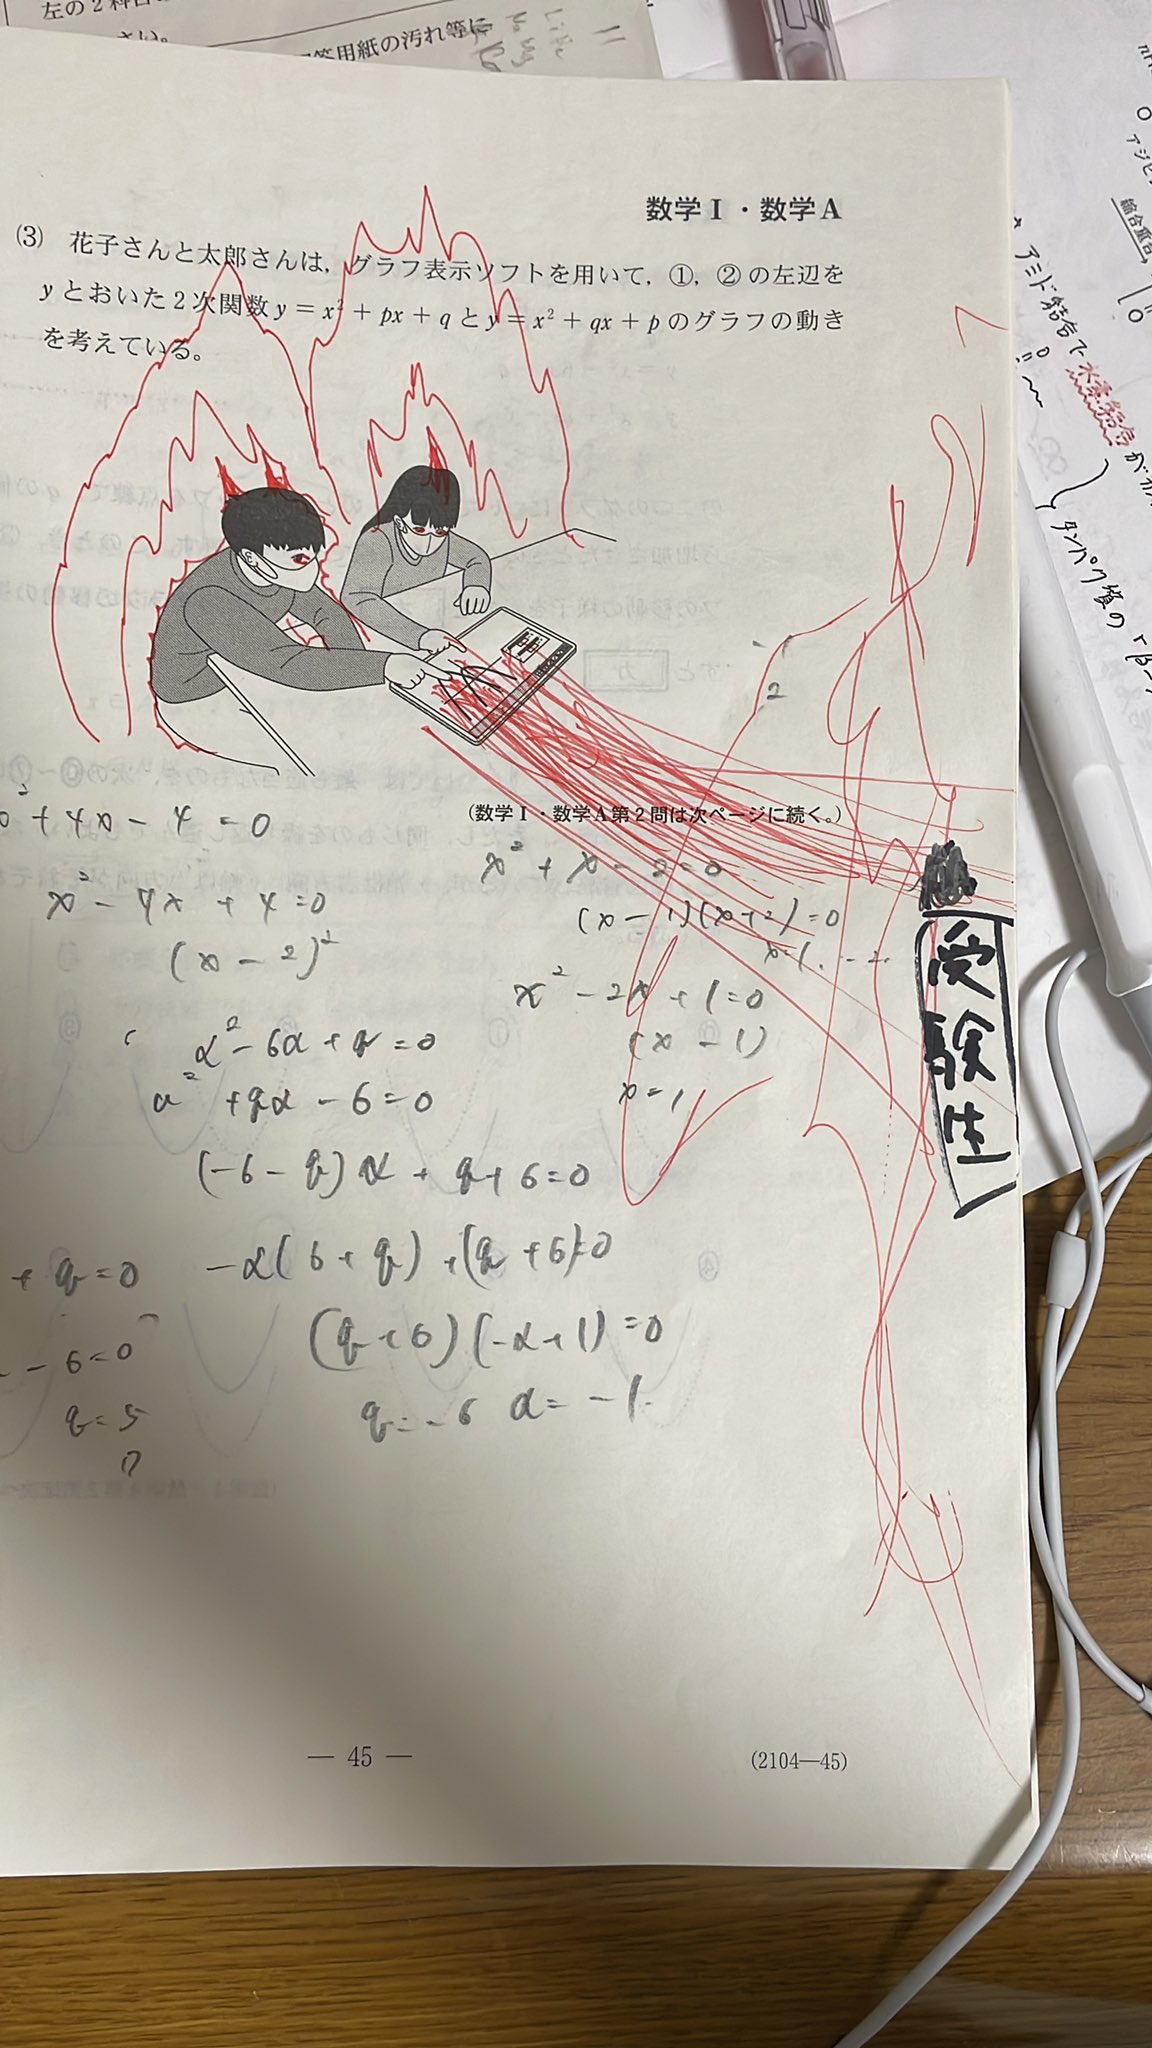 左の2科目
さい。
答用紙の汚れ等に
数学Ⅰ・数学A
(3) 花子さんと太郎さんは,グラフ表示ソフトを用いて,①,②の左辺を
yとおいた2次関数y=x²+px+qとy=x²+qx+pのグラフの動き
を考えている。
(数学Ⅰ・数学A第2問は次ページに続く。)
x²+4x-4=0
x²-4x+4=0
(x-2)²
α²-6α+q=0
α²+qα-6=0
(-6-q)α+q+6=0
-α(6+q)+(q+6)=0
(q+6)(-α+1)=0
q=-6 α=-1
+q=0
-6=0
q=5
x²+x-2=0
(x-1)(x+2)=0
x=1,-2
x²-2x+1=0
(x-1)
x=1
2
受験生
アミド結合で水素結合が
タンパク質の
縮合重合
— 45 —
(2104—45)